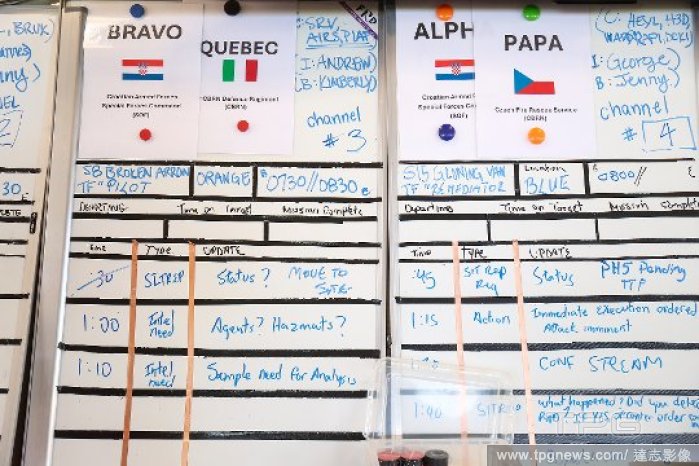 BRAVO
QUEBEC
Croatian Armed Forces
Special Forces Command
(SOF)
CBRN Defence Regiment
(CBRN)
I: ANDREW
B: KIMBERLY
channel
# 3
S8 BROKEN ARROW
TF "PILOT
ORANGE
0730//0830
DEPARTING
Time on Target
Mission Complete
TIME
TYPE
UPDATE
:30
SITREP
Status? MOVE TO
1:00
Intel
need
Agents? Hazmats?
1:10
Intel
need
Sample need for Analysis
ALPH
PAPA
Croatian Armed
Special Forces
(SOF)
Czech Fire Rescue Service
(CBRN)
I: George
B: Jenny
channel
# 4
VAN
TF "REMEDIATOR
Location
BLUE
0800//
Departing
Time on Target
Mission Complet
Time
TYPE
UPDATE
:45
SIT REP
Req
Status
Pending
TTP
1:15
Action
Immediate execution ordered
Attack imminent
CONF STREAM
1:40
SITREP
what happened? Did you
www.tpgnews.com/ 達志影像